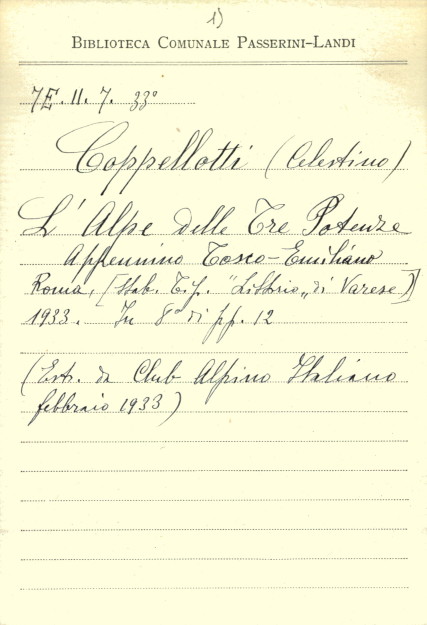 1)
BIBLIOTECA COMUNALE PASSERINI-LANDI
7E. II. 7. 33°
Coppellotti (Celestino)
L'Alpe delle Tre Potenze
Appennino Tosco-Emiliano
Roma, [Stab. Tip. "Littorio" di Varese]
1933. In 8° di pp. 12
(Estr. da Club Alpino Italiano
febbraio 1933)